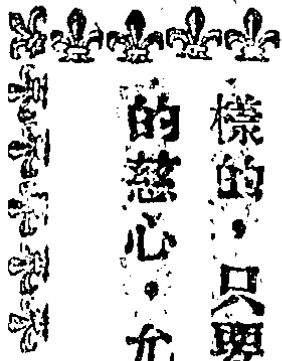 樣的，只要
的慈心，允